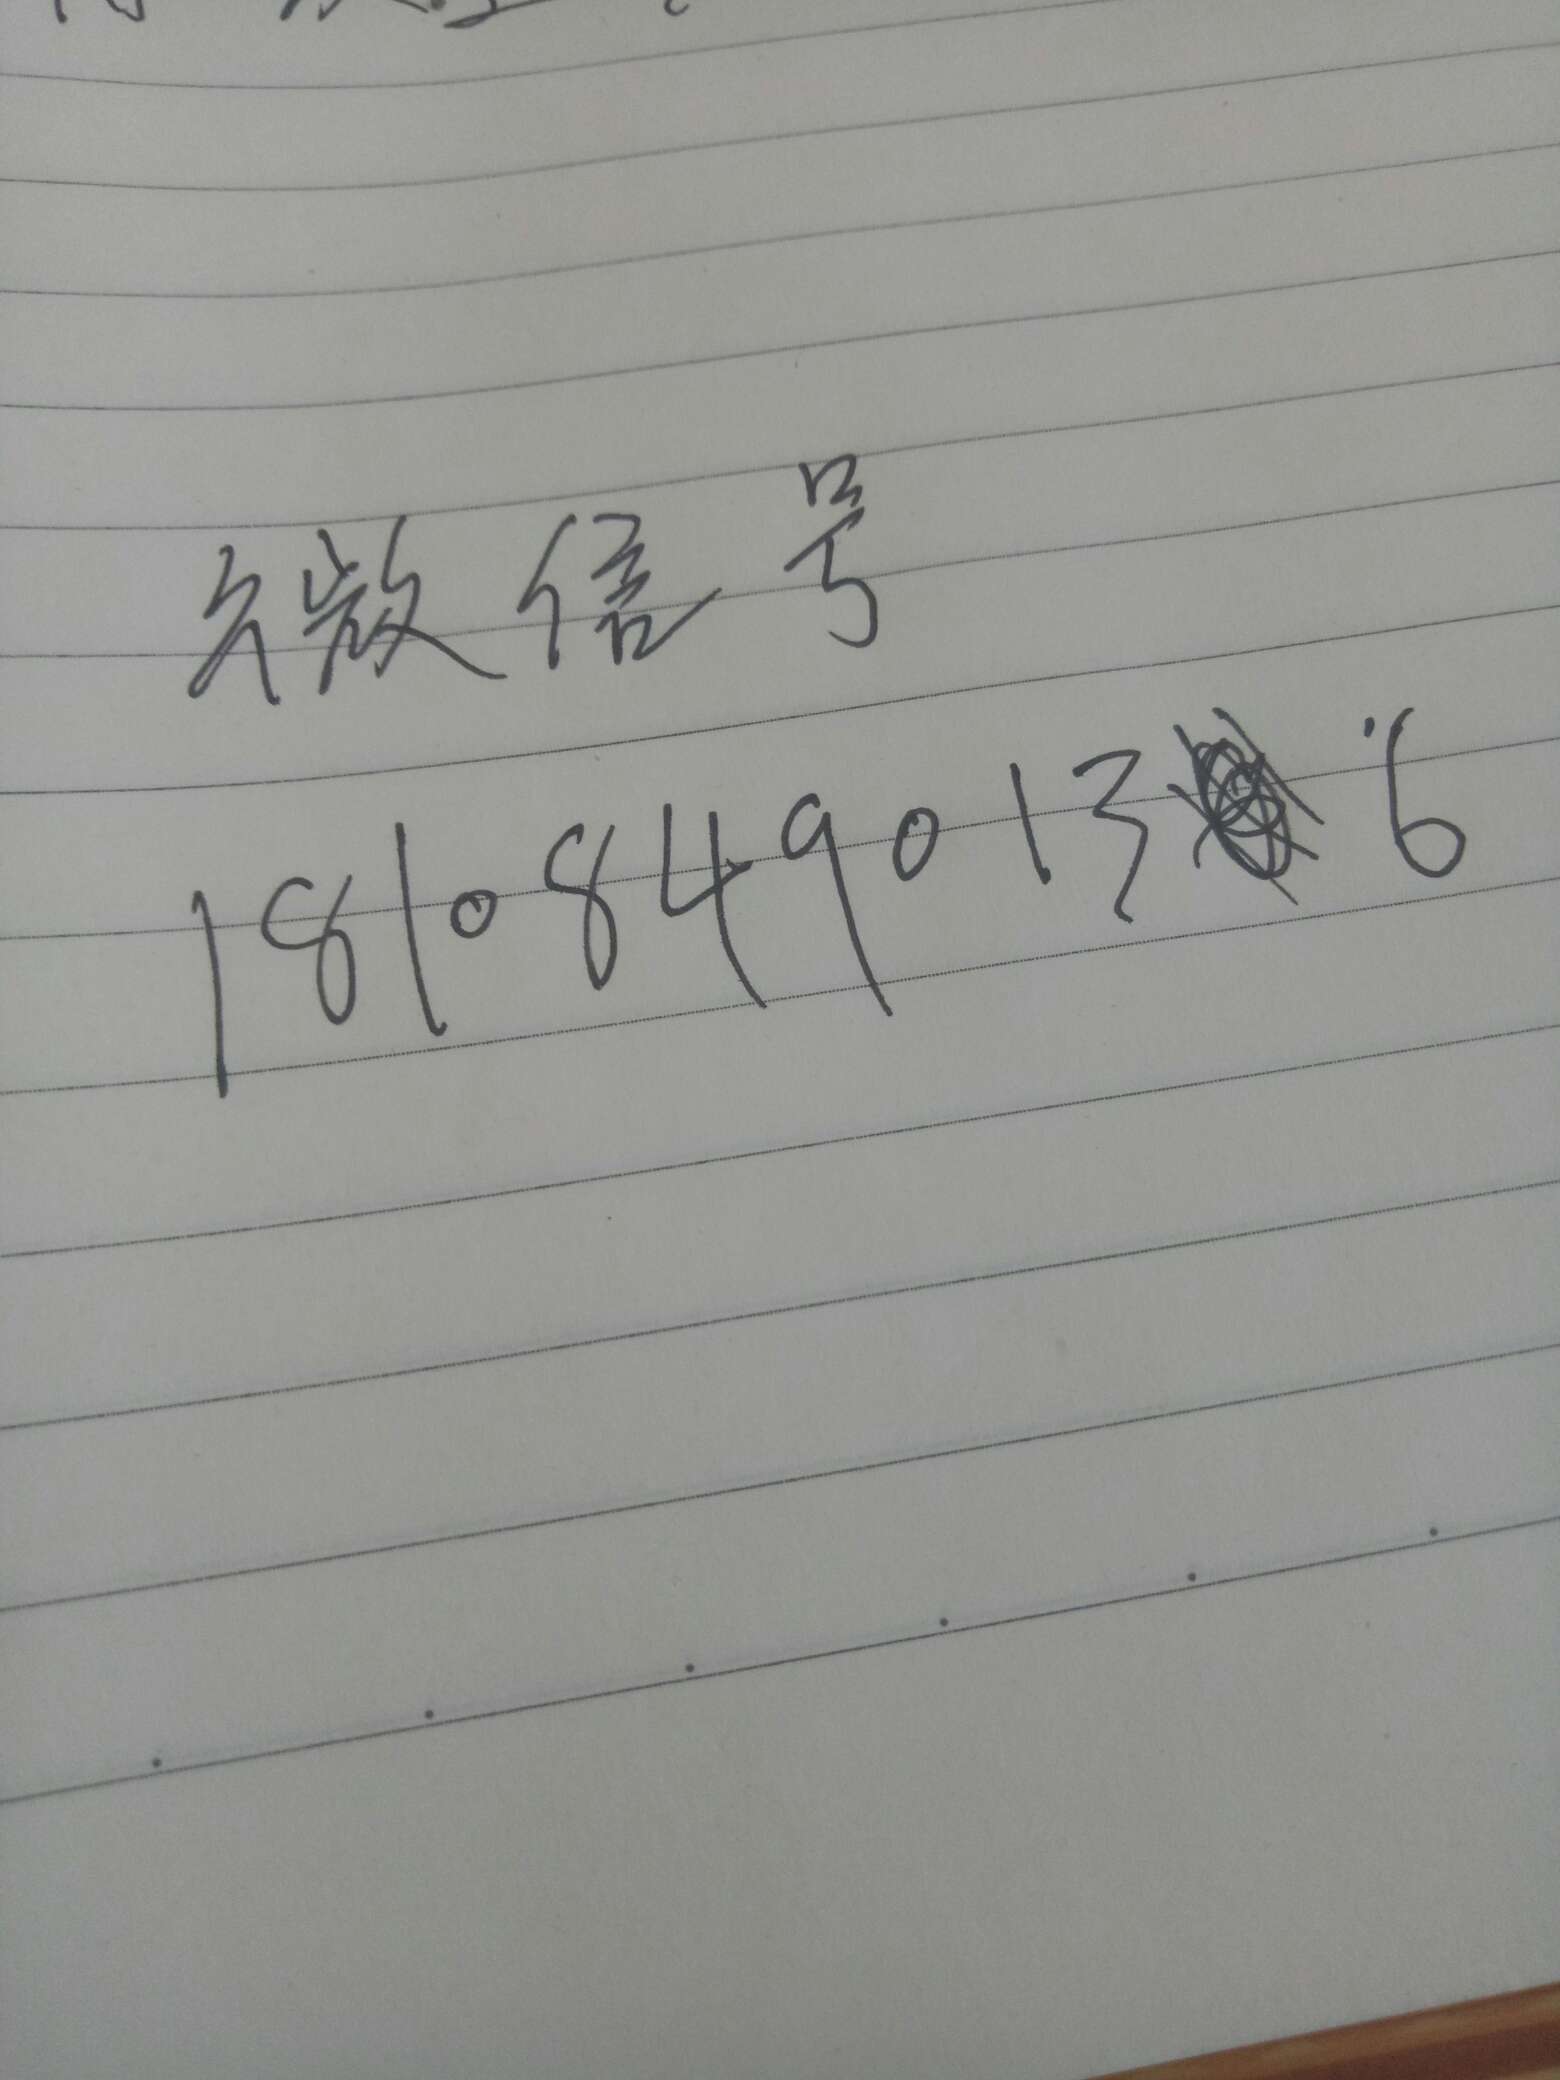 微信号
18108490136